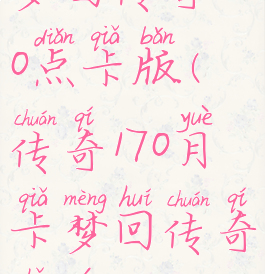 diǎn qiǎ bǎn
0点卡版(
chuán qí yuè
传奇170月
qiǎ mèng huí chuán qí
卡梦回传奇